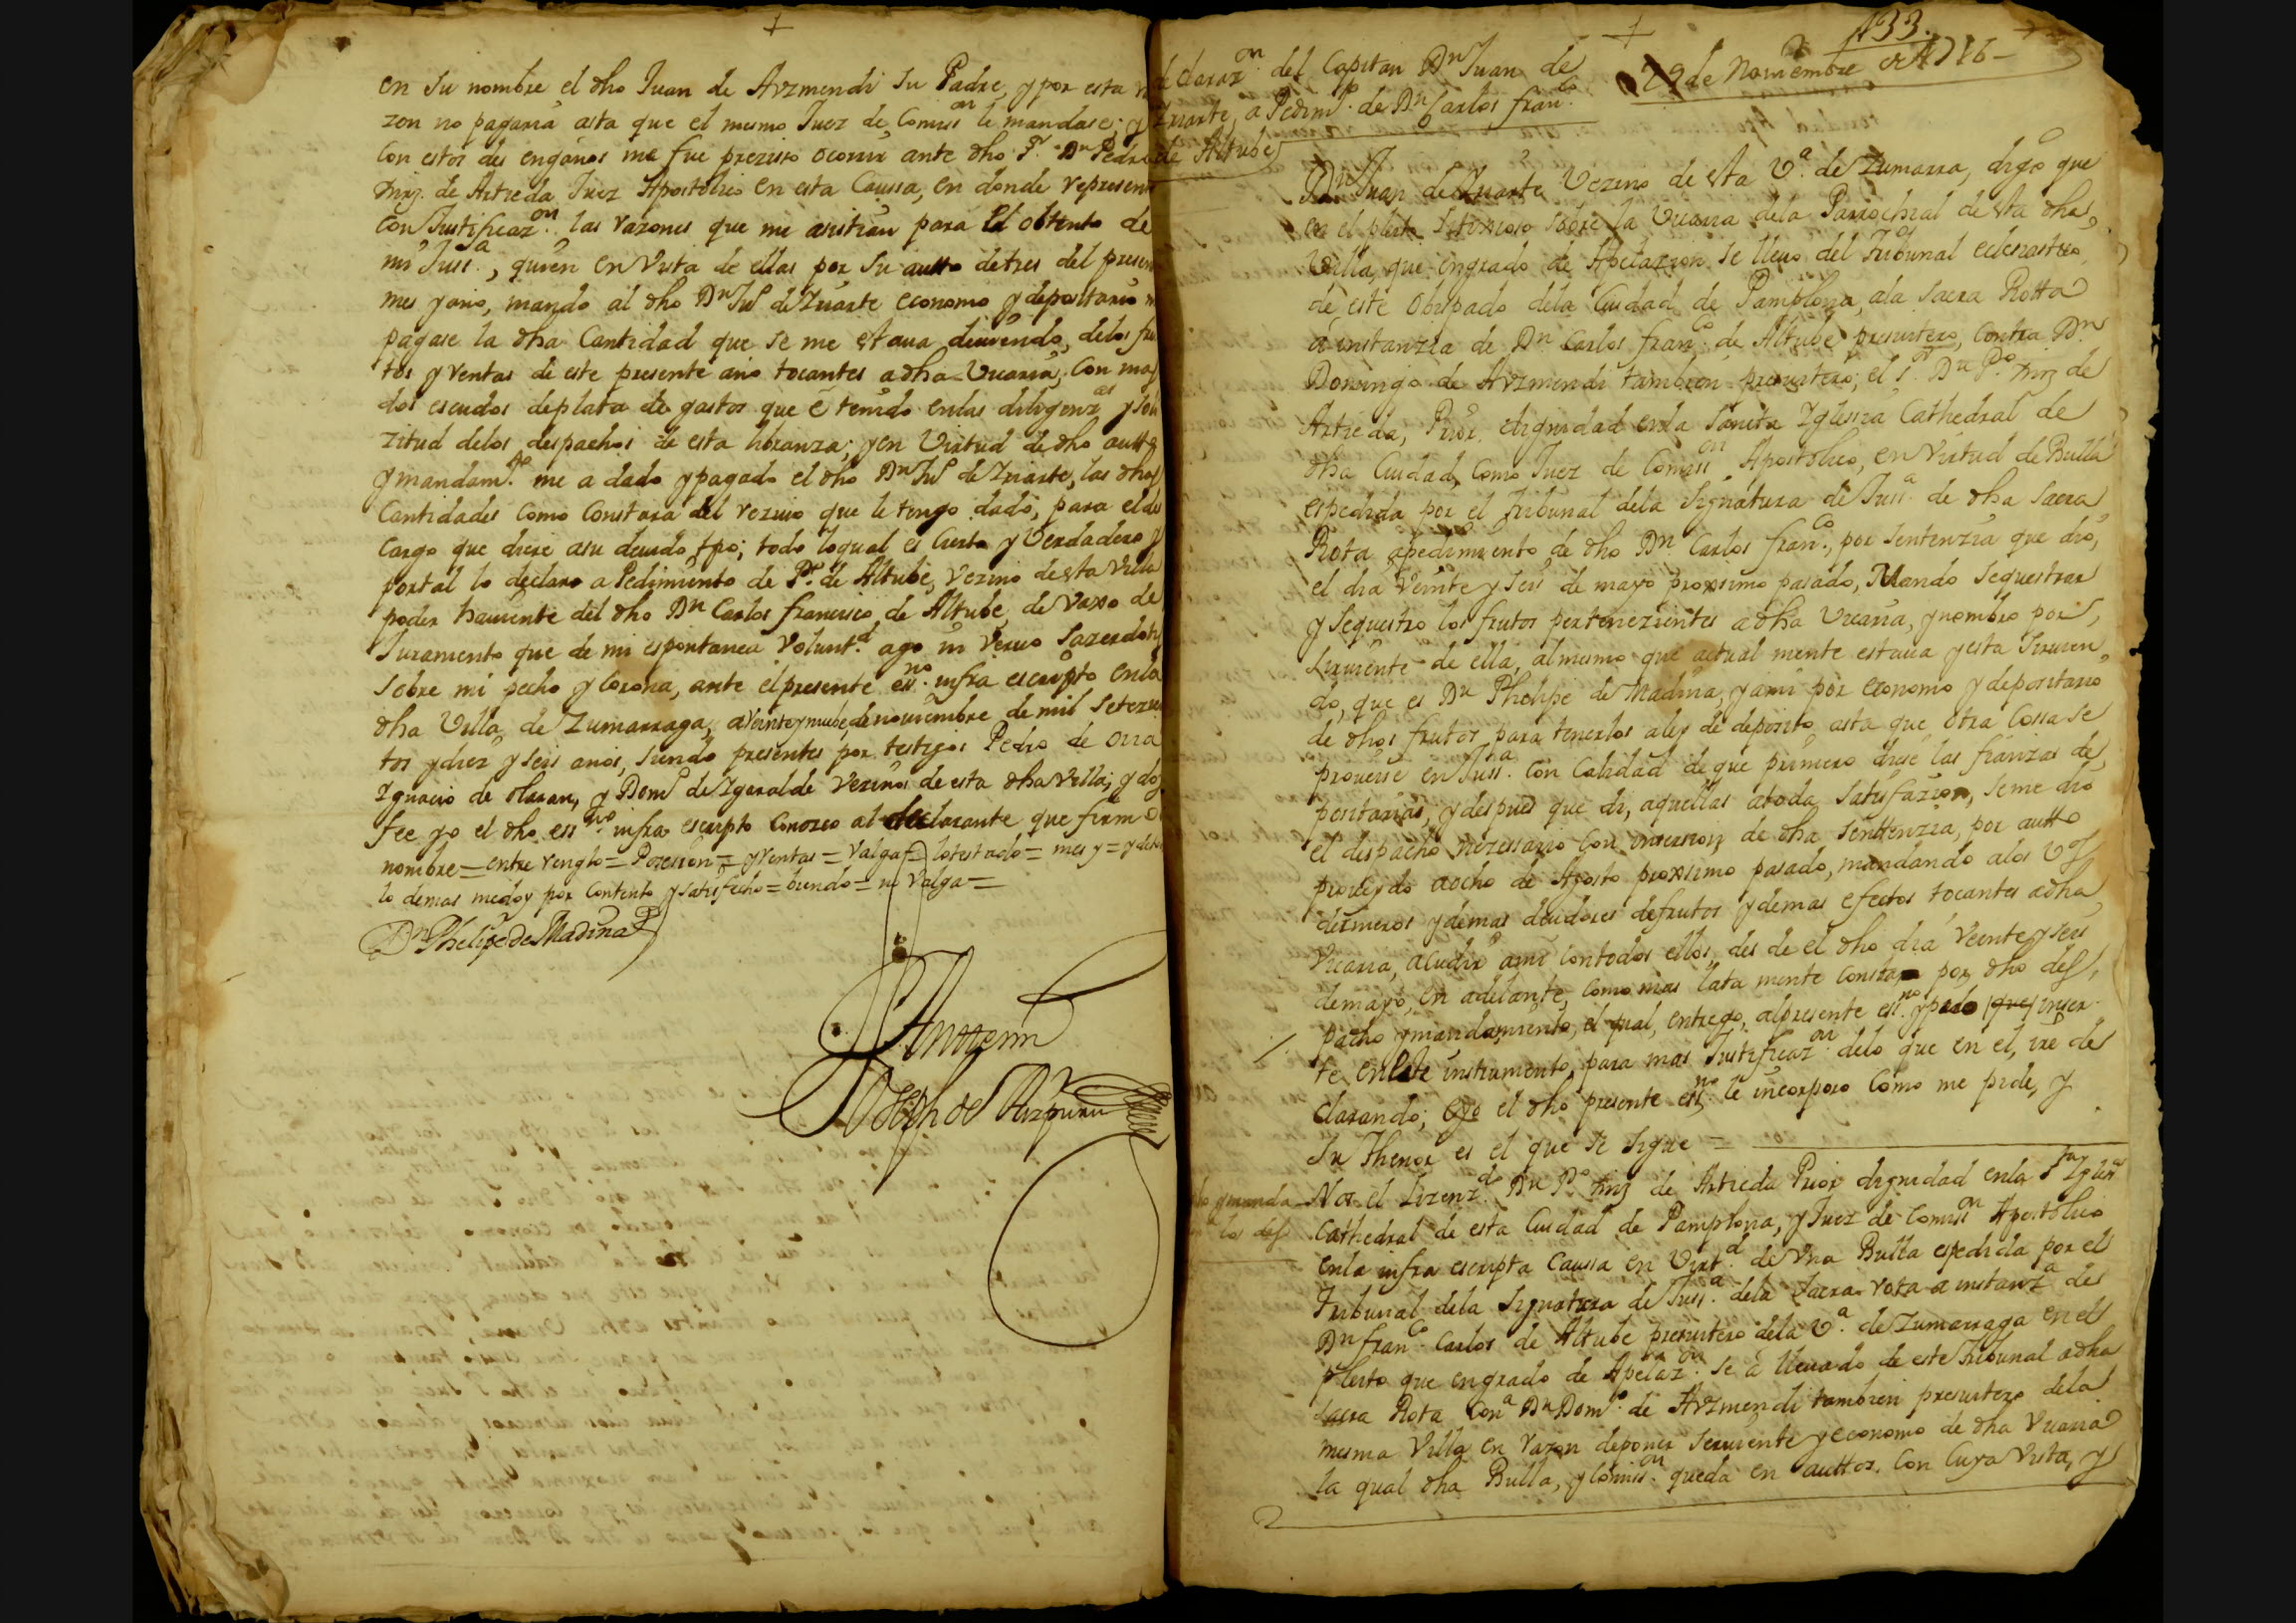 en su nombre el dho Juan de Arzmendi su Padre, y por esta
zon no pagaria asta que el mismo Juez de Comiss.on le mandase; y
con estos des engaños me fue preziso ocorrir ante dho S.r Dn Pedro
Mrnz. de Artieda Juez Apostolico en esta Caussa, en donde represen
con Justificaz.on las razones que me asistian para el obtento de
mi Juss.a, quien en Vista de ellas por su autto de tres del presen
mes y año, mando al dho Dn Ju.o de Zuarte economo y depositario
pagase la dha Cantidad que se me estaua deuiendo, delos fru
tos y Ventas de este presente año tocantes a dha Vicaria, con mas
dos escudos de plata de gastos que e tenido en las diligenz.as y soli
zitud delos despachos de esta libranza; y en Virtud de dho autto
y mandam.to me a dado y pagado el dho Dn Ju.o de Zriarte, las dhas
Cantidades como Constara del reziuo que le tengo dado, para el des
cargo que diere a su deuido tpo; todo loqual es Cierto y Verdadero y
por tal lo declaro a Pedimiento de P.o de Altube, Vezino desta Villa
poder hauiente del dho Dn Carlos francisco de Altube, de vaxo de
Juramento que de mi espontanea Volunt.d ago in Verbo Sazerdotis
sobre mi pecho y Corona, ante el presente ess.no infra escripto enla
dha Villa de Zumarraga, a Veinte y nuebe de nouiembre de mil setezien
tos y diez y seis años, siendo presentes por testigos Pedro de Oria
Ygnacio de Olaran, y Dom.o de Ygeralde Vezinos de esta dha Villa; y doy
fee yo el dho ess.no infra escripto Conozco al declarante que firmo
nombre = entre renglo = Posession = y Ventas = Valga = lo testado = mes y =
lo demas medoy por Contento y satisfecho = biendo = no Valga =
Dn Phelipe de Madina
Ante mi
Joseph de Aizpuru
133.
29 de Nouiembre de 1716
Declaraz.on del Capitan Dn Juan de
Zriarte, a Pedim.to de Dn Carlos fran.co
de Altube
Dn Juan de Zriarte Vezino de esta V.a de Zumarra, digo que
en el pleito litixioso sobre la Vicaria dela Parrochial de esta dha
Villa, que en grado de Apelazion se lleuo del Tribunal eclesiastico
de este Obispado dela Ciudad de Pamplona, ala sacra Rotta
a instanzia de Dn Carlos fran.co de Altube presuitero, Contra Dn
Domingo de Arzmendi tambien presuitero; el S.r Dn P.o Mrnz de
Artieda, Prior dignidad enla Santa Yglesia Cathedral de
dha Ciudad, Como Juez de Comiss.on Apostolico, en Virtud de Bulla
espedida por el Tribunal dela Signatura de Juss.a de dha Sacra
Rota, apedimiento de dho Dn Carlos fran.co, por sentenzia que dio,
el dia Veinte y seis de mayo proximo pasado, Mando sequestrar
y sequestro los frutos pertenezientes a dha Vicaria, y nombro por
siruiente de ella, almismo que actual mente estaua y esta siruien
do, que es Dn Phelipe de Madina, y ami por economo y depositario
de dhos frutos para tenerlos a ley de deposito asta que otra Cossa se
proueise en Juss.a con Calidad de que primero diese las fianzas de
positarias, y despues que di, aquellas atoda satisfazion, seme dio
el despacho nezessario con inserzion de dha senttenzia, por autto
proueydo aocho de Agosto proximo pasado, mandando alos V.os
diezmeros y demas deudores de frutos y demas efectos tocantes a dha
Vicaria, acudir ami con todos ellos, des de el dho dia Veinte y seis
de mayo, en adelante, como mas lata mente constara por dho des,
pacho y mandamiento, el qual, entrego, alpresente ess.no y pido que inser
te en este instrumento, para mas Justificaz.on delo que en el, ire de
clarando; e yo el dho presente ess.no le incorporo como me pide, y
su Thenor es el que se sigue =
Nos el Lizenz.do Dn P.o Mrnz de Artieda Prior dignidad enla S.ta Yglesia
Cathedral de esta Ciudad de Pamplona, y Juez de Comiss.on Apostolico
enla infra escripta Caussa en Virt.d de Vna Bulla espedida por el
Tribunal dela Signatura de Juss.a dela Sacra rota a instanz.a de
Dn fran.co Carlos de Altube presuitero dela V.a de Zumarraga en el
pleito que en grado de Apelaz.on se a lleuado de este Tribunal a dha
sacra Rota Con.a Dn Dom.o de Arzmendi tambien presuitero dela
misma Villa en razon de poner seruiente y economo de dha Vicaria
la qual dha Bulla, y Comiss.on queda en auttos. Con Cuya Vista, y